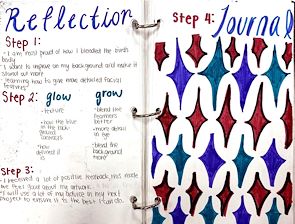 Reflection
Step 1:
- I am most proud of how I blended the birds
body.
- I want to improve on my background and make it
stand out more
- learning how to give more detailed facial
features
Step 2: glow grow
- texture
- how the blue
in the back-
ground
- how
defined it
- blend the
feathers
better
- more detail
in eye
- blend the
background
more
Step 3:
- I received a lot of positive feedback, this made
me feel good about my artwork.
- I will use a lot of my in my next
project to ensure it is the best I can do.
Step 4: Journal